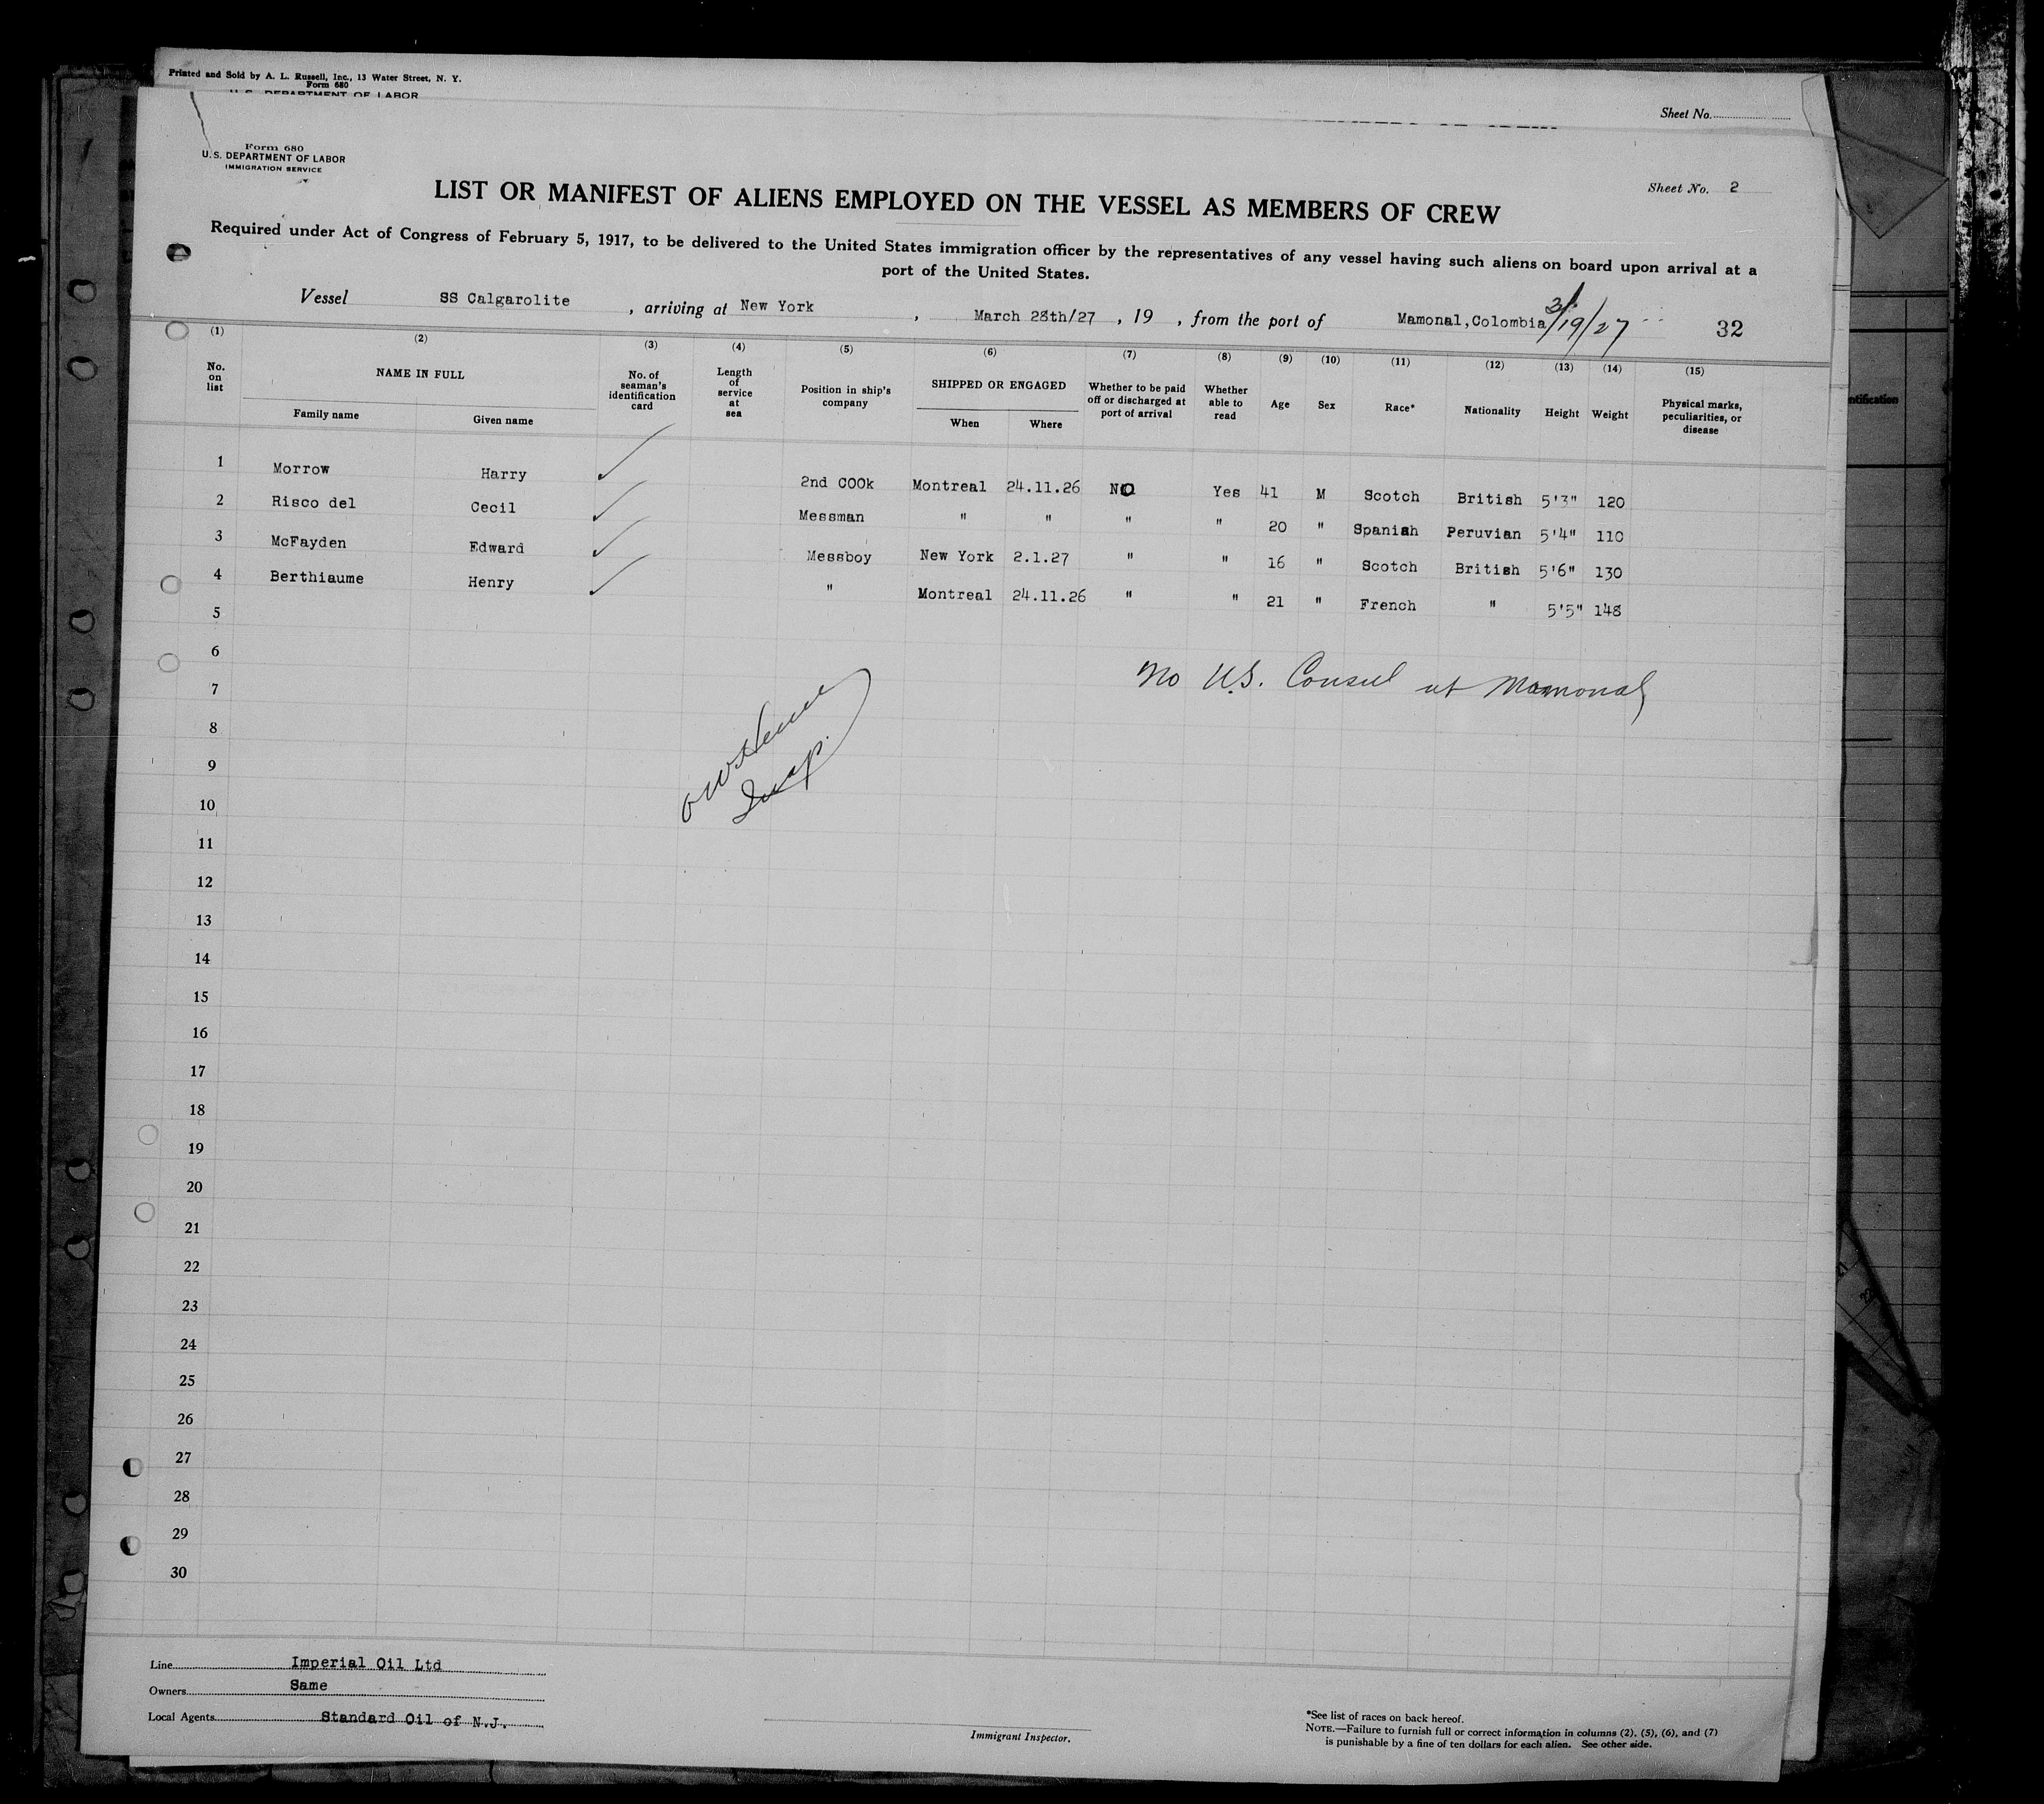 Printed and Sold by A. L. Russell, Inc., 13 Water Street, N. Y.
Form 680
U. S. DEPARTMENT OF LABOR
Sheet No.
Form 680
U. S. DEPARTMENT OF LABOR
IMMIGRATION SERVICE
Sheet No. 2
LIST OR MANIFEST OF ALIENS EMPLOYED ON THE VESSEL AS MEMBERS OF CREW
Required under Act of Congress of February 5, 1917, to be delivered to the United States immigration officer by the representatives of any vessel having such aliens on board upon arrival at a
port of the United States.
Vessel SS Calgarolite, arriving at New York, March 28th/27, 19 , from the port of Mamonal,Colombia 3/19/27 32
(1) (2) (3) (4) (5) (6) (7) (8) (9) (10) (11) (12) (13) (14) (15)
No. on list NAME IN FULL Family name Given name No. of seaman's identification card Length of service at sea Position in ship's company SHIPPED OR ENGAGED When Where Whether to be paid off or discharged at port of arrival Whether able to read Age Sex Race* Nationality Height Weight Physical marks, peculiarities, or disease
1 Morrow Harry 2nd COOk Montreal 24.11.26 NO Yes 41 M Scotch British 5'3" 120
2 Risco del Cecil Messman " " " " 20 " Spanish Peruvian 5'4" 110
3 McFayden Edward Messboy New York 2.1.27 " " 16 " Scotch British 5'6" 130
4 Berthiaume Henry " Montreal 24.11.26 " " 21 " French " 5'5" 148
5
6
No U.S. Consul at Mamonal
7
8
9
10
11
12
13
14
15
16
17
18
19
20
21
22
23
24
25
26
27
28
29
30
Line Imperial Oil Ltd
Owners Same
Local Agents Standard Oil of N.J.
Immigrant Inspector.
*See list of races on back hereof.
NOTE.—Failure to furnish full or correct information in columns (2), (5), (6), and (7)
is punishable by a fine of ten dollars for each alien. See other side.
ntification